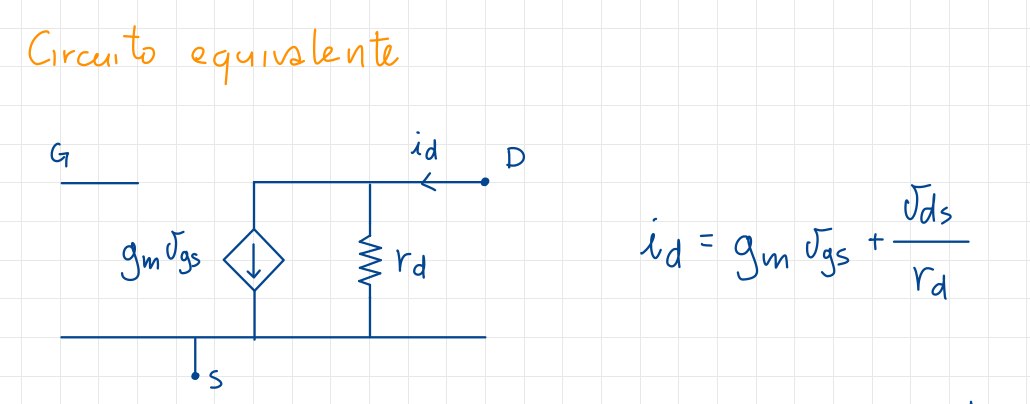 Circuito equivalente
G
id
D
gm vgs
rd
S
id = gm vgs + vds/rd